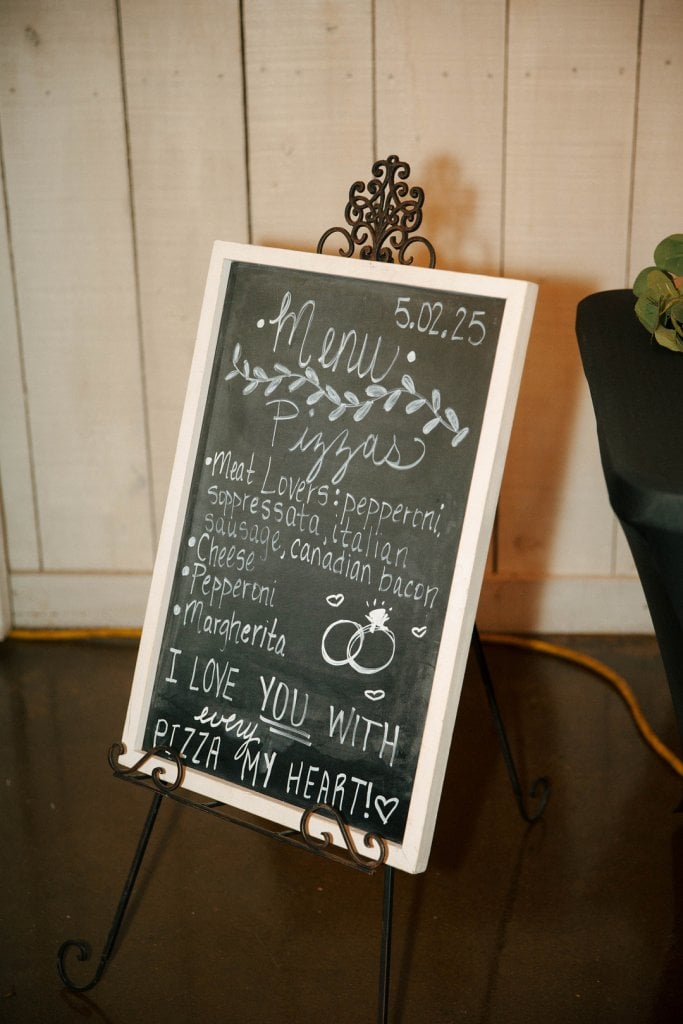 5.02.25
• Menu •
Pizzas
• Meat Lovers: pepperoni,
soppressata, italian
sausage, canadian bacon
• Cheese
• Pepperoni
• Margherita
I LOVE YOU WITH
every
PIZZA MY HEART!